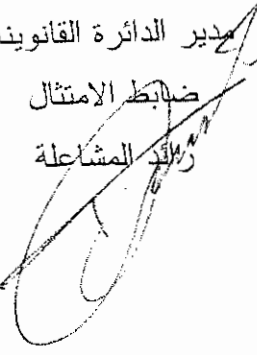 مدير الدائرة القانوينة
ضابط الامتثال
رائد المشاعلة